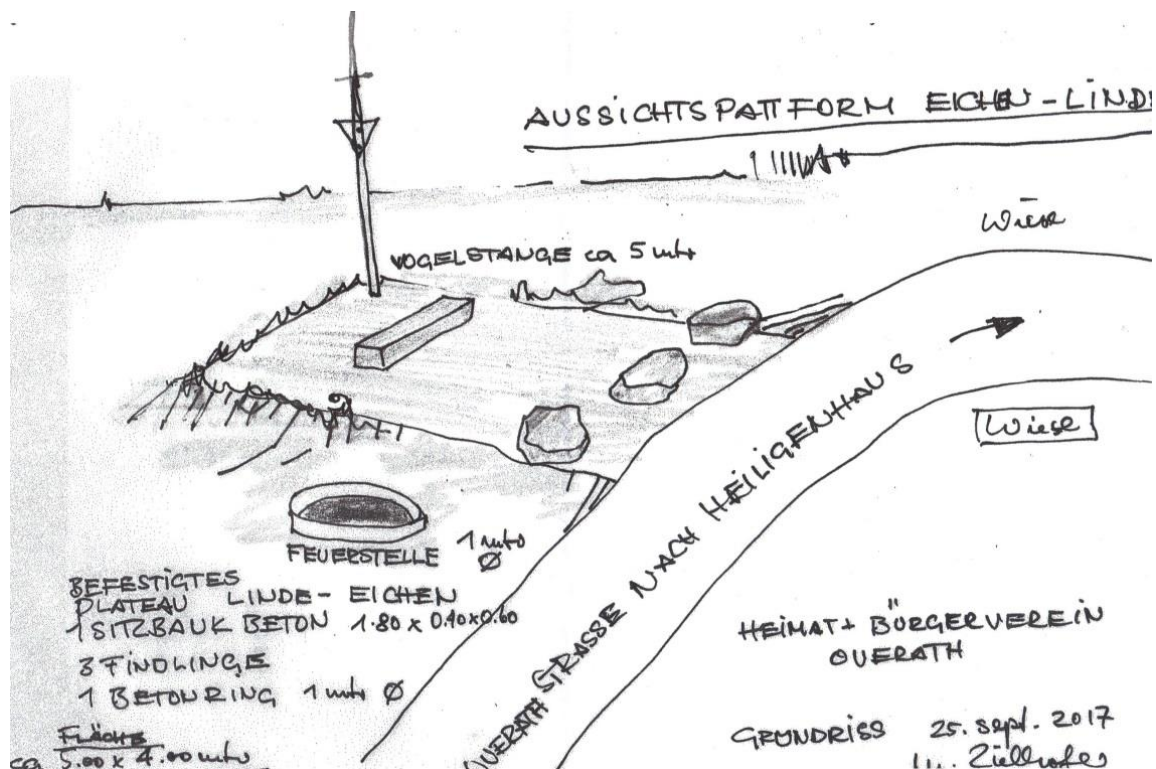 AUSSICHTSPATTFORM EICHEN-LINDE
Wiese
VOGELSTANGE ca 5 mtr
Wiese
FEUERSTELLE
1 mtr
Ø
BEFESTIGTES
PLATEAU LINDE-EICHEN
1 SITZBAUK BETON 1.80 x 0.40 x 0.60
3 FINDLINGE
1 BETONRING 1 mtr Ø
FLÄCHE
ca 5.00 x 4.00 mtr
OVERATH STRASSE NACH HEILIGENHAUS
HEIMAT + BÜRGERVEREIN
OVERATH
GRUNDRISS 25. sept. 2017